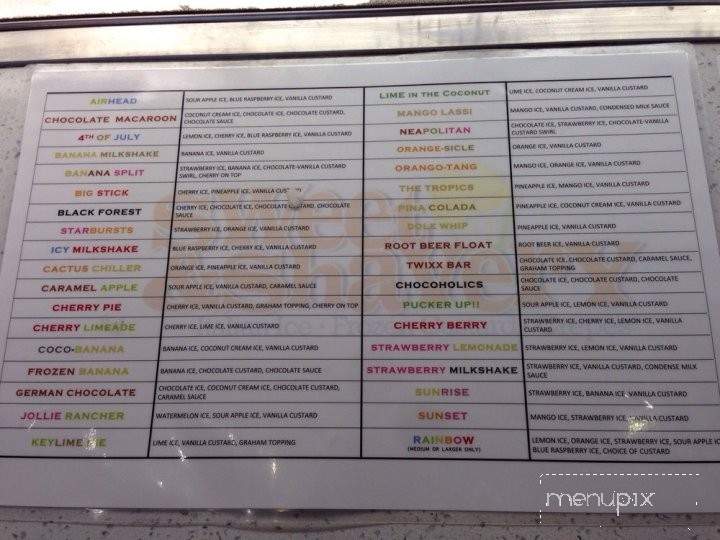 AIRHEAD SOUR APPLE ICE, BLUE RASPBERRY ICE, VANILLA CUSTARD
CHOCOLATE MACAROON COCONUT CREAM ICE, CHOCOLATE ICE, CHOCOLATE CUSTARD,
CHOCOLATE SAUCE
4TH OF JULY LEMON ICE, CHERRY ICE, BLUE RASPBERRY ICE, VANILLA CUSTARD
BANANA MILKSHAKE BANANA ICE, VANILLA CUSTARD
BANANA SPLIT STRAWBERRY ICE, BANANA ICE, CHOCOLATE-VANILLA CUSTARD
SWIRL, CHERRY ON TOP
BIG STICK CHERRY ICE, PINEAPPLE ICE, VANILLA CUSTARD
BLACK FOREST CHERRY ICE, CHOCOLATE ICE, CHOCOLATE CUSTARD, CHOCOLATE
SAUCE
STARBURSTS STRAWBERRY ICE, ORANGE ICE, VANILLA CUSTARD
ICY MILKSHAKE BLUE RASPBERRY ICE, CHERRY ICE, VANILLA CUSTARD
CACTUS CHILLER ORANGE ICE, PINEAPPLE ICE, VANILLA CUSTARD
CARAMEL APPLE SOUR APPLE ICE, VANILLA CUSTARD, CARAMEL SAUCE
CHERRY PIE CHERRY ICE, VANILLA CUSTARD, GRAHAM TOPPING, CHERRY ON TOP
CHERRY LIMEADE CHERRY ICE, LIME ICE, VANILLA CUSTARD
COCO-BANANA BANANA ICE, COCONUT CREAM ICE, VANILLA CUSTARD
FROZEN BANANA BANANA ICE, CHOCOLATE CUSTARD, CHOCOLATE SAUCE
GERMAN CHOCOLATE CHOCOLATE ICE, COCONUT CREAM ICE, CHOCOLATE CUSTARD,
CARAMEL SAUCE
JOLLIE RANCHER WATERMELON ICE, SOUR APPLE ICE, VANILLA CUSTARD
KEYLIME PIE LIME ICE, VANILLA CUSTARD, GRAHAM TOPPING
LIME IN THE COCONUT LIME ICE, COCONUT CREAM ICE, VANILLA CUSTARD
MANGO LASSI MANGO ICE, VANILLA CUSTARD, CONDENSED MILK SAUCE
NEAPOLITAN CHOCOLATE ICE, STRAWBERRY ICE, CHOCOLATE-VANILLA
CUSTARD SWIRL
ORANGE-SICLE ORANGE ICE, VANILLA CUSTARD
ORANGO-TANG MANGO ICE, ORANGE ICE, VANILLA CUSTARD
THE TROPICS PINEAPPLE ICE, MANGO ICE, VANILLA CUSTARD
PINA COLADA PINEAPPLE ICE, COCONUT CREAM ICE, VANILLA CUSTARD
DOLE WHIP PINEAPPLE ICE, VANILLA CUSTARD
ROOT BEER FLOAT ROOT BEER ICE, VANILLA CUSTARD
TWIXX BAR CHOCOLATE ICE, CHOCOLATE CUSTARD, CARAMEL SAUCE,
GRAHAM TOPPING
CHOCOHOLICS CHOCOLATE ICE, CHOCOLATE CUSTARD, CHOCOLATE
SAUCE
PUCKER UP!! SOUR APPLE ICE, LEMON ICE, VANILLA CUSTARD
CHERRY BERRY STRAWBERRY ICE, CHERRY ICE, LEMON ICE, VANILLA
CUSTARD
STRAWBERRY LEMONADE STRAWBERRY ICE, LEMON ICE, VANILLA CUSTARD
STRAWBERRY MILKSHAKE STRAWBERRY ICE, VANILLA CUSTARD, CONDENSE MILK
SAUCE
SUNRISE STRAWBERRY ICE, BANANA ICE, VANILLA CUSTARD
SUNSET MANGO ICE, STRAWBERRY ICE, VANILLA CUSTARD
RAINBOW LEMON ICE, ORANGE ICE, STRAWBERRY ICE, SOUR APPLE IC
(MEDIUM OR LARGER ONLY) BLUE RASPBERRY ICE, CHOICE OF CUSTARD
menupix